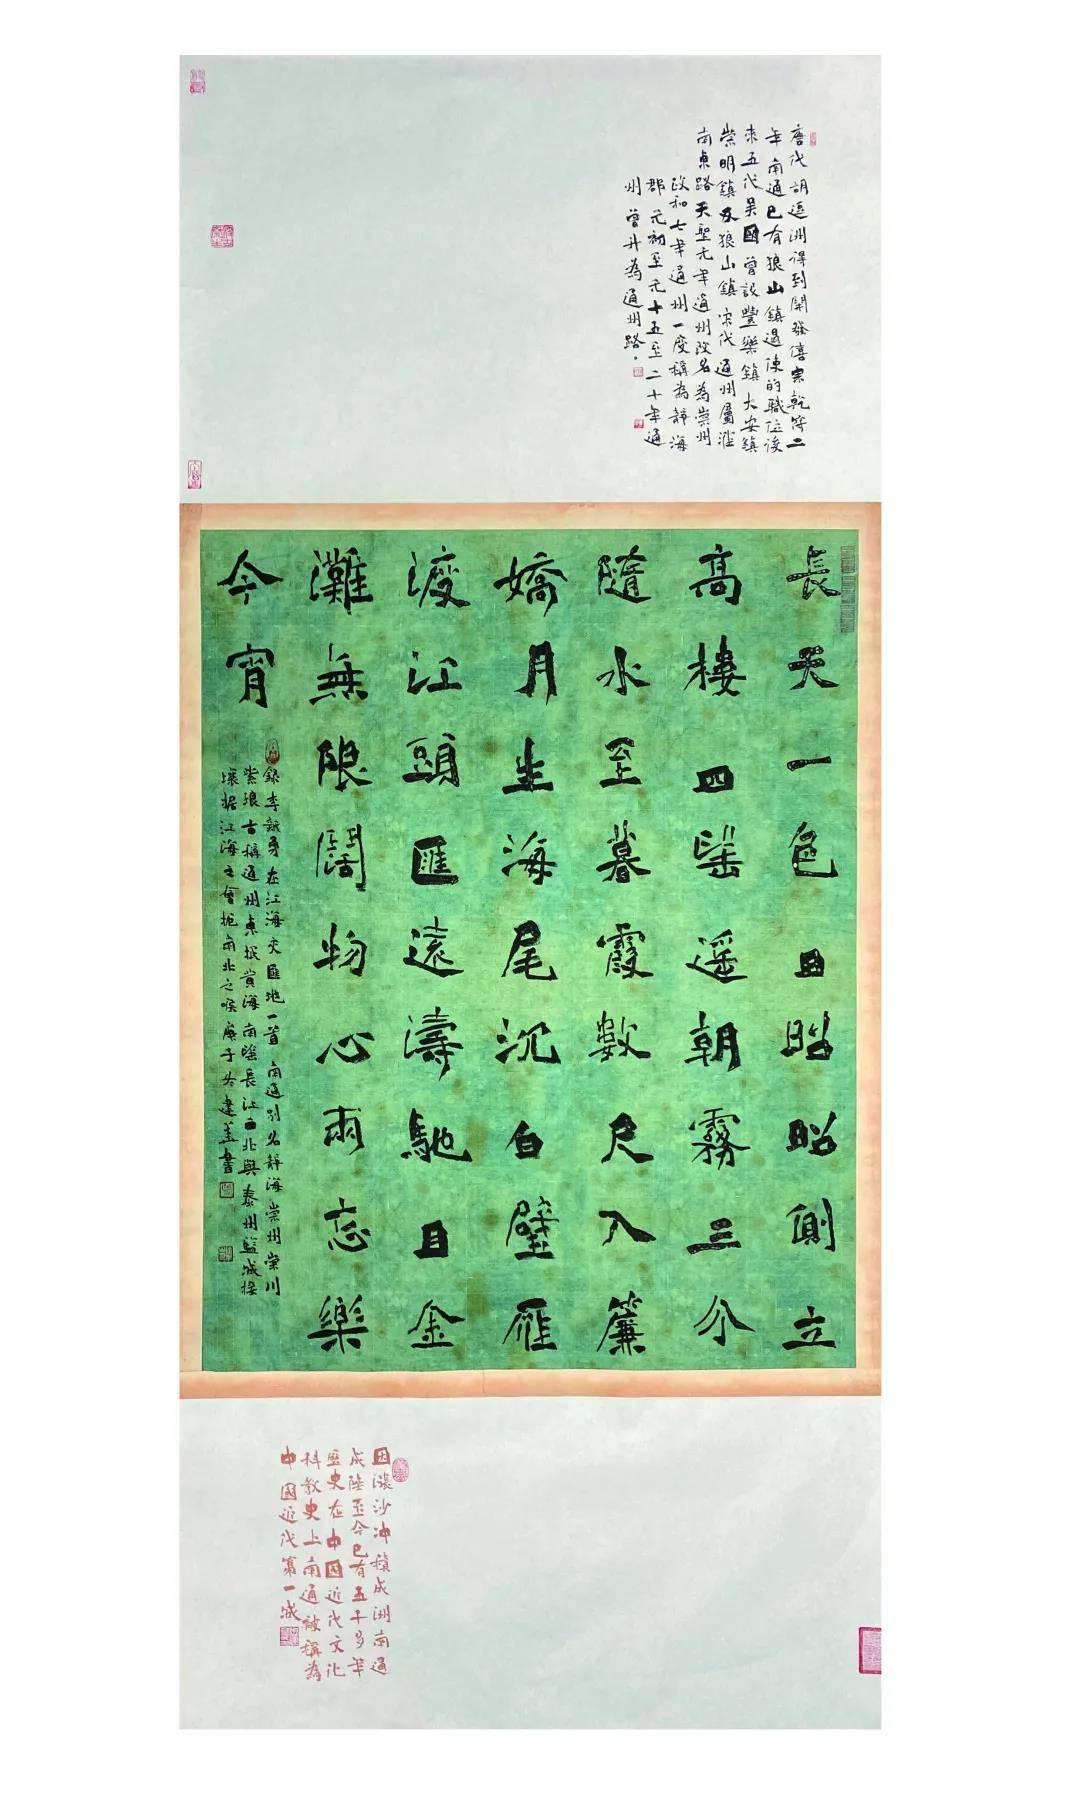 唐代胡逗洲得到開發僖宗乾符二
年南通已有狼山鎮遏使的職位後
來五代吴國曾設豐樂鎮大安鎮
崇明鎮及狼山鎮宋代通州屬淮
南東路天聖元年通州改名為崇州
政和七年通州一度稱為静海
郡元初至元十五至二十年通
州曾升為通州路
長天一色日昭昭側立
高樓四望遥朝霧三分
隨水至暮霞數尺入簾
嬌月生海尾沉白璧雁
渡江頭匯遠濤馳目金
灘無限闊物心兩忘樂
今宵
錄李新勇在江海交匯地一首南通别名静海崇州崇川
紫琅古稱通州東抵黄海南望長江西北與泰州鹽城接
壤據江海之會扼南北之喉庚子冬建善書
因漲沙冲積成洲南通
成陸至今已有五千多年
歷史在中國近代文化
科教史上南通被稱為
中國近代第一城